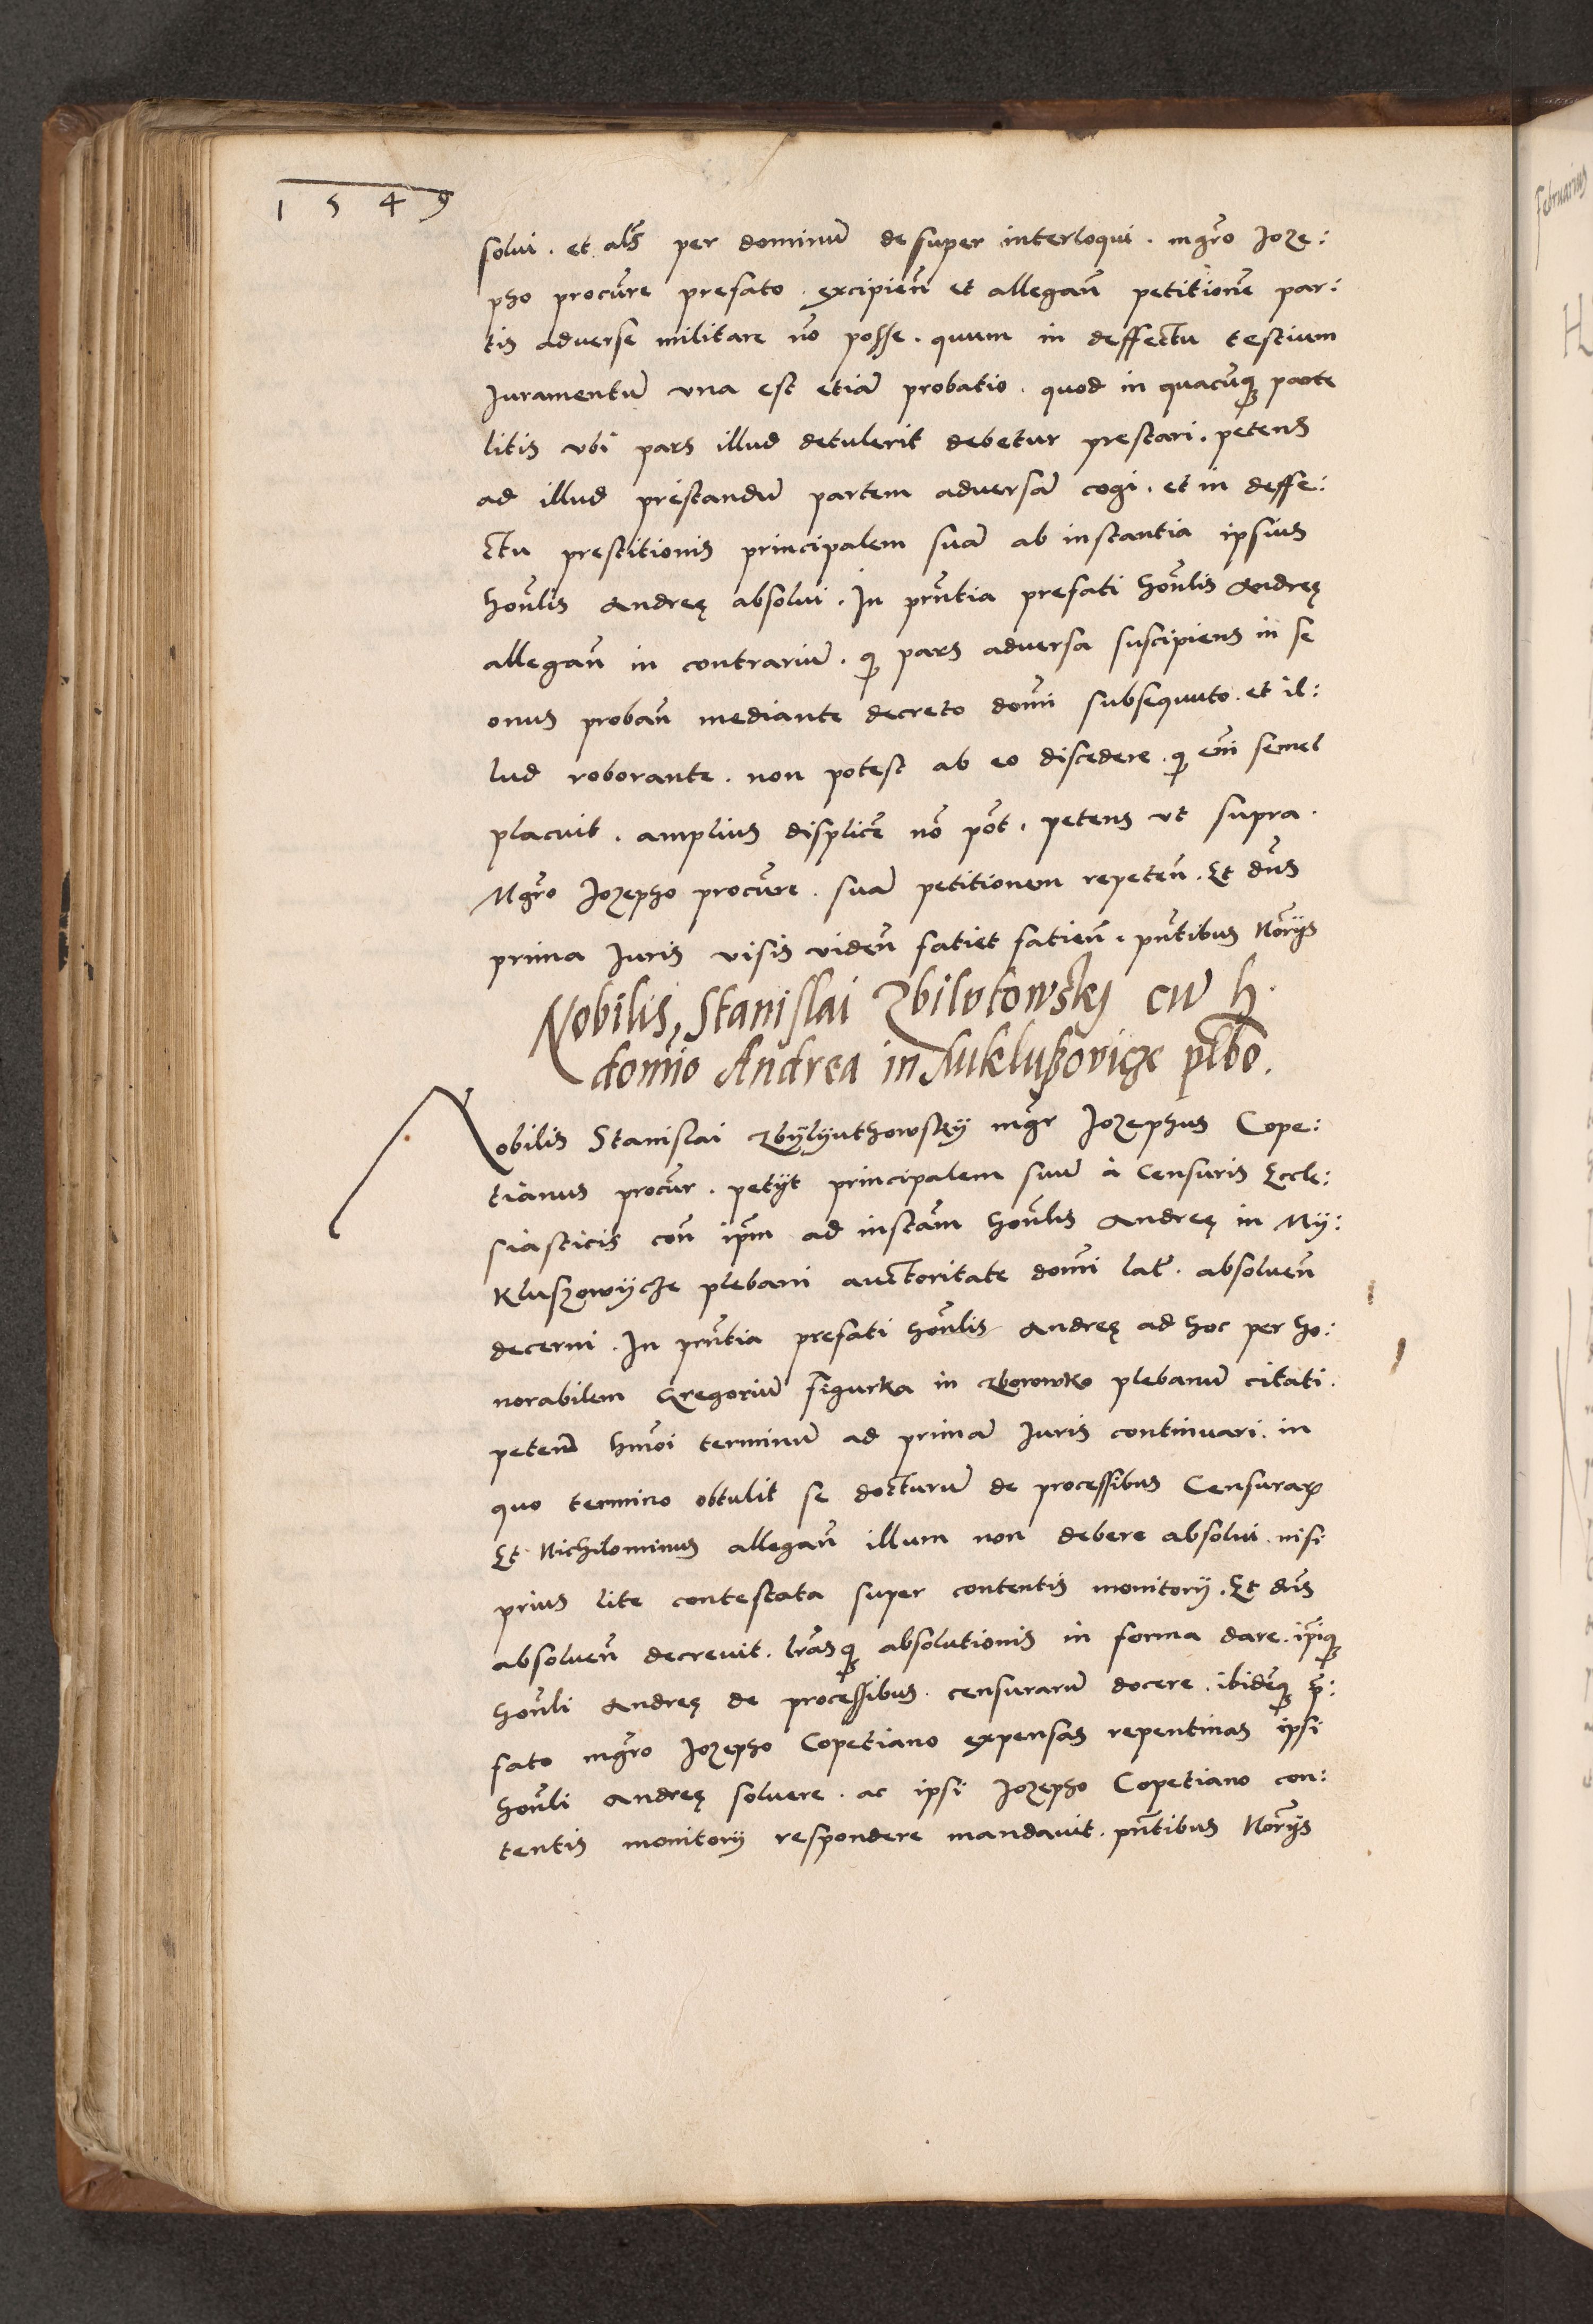 1 5 4 9
solui . et als̄ per dominū desuper interloqui . mgr̄o Joze:
pho procūre prefato . excipien̄ et allegan̄ petitionē par:
tis aduerse militare nō posse . quum in deffectu testium
Juramentū vna est etiā probatio . quod in quacūqꝫ parte
litis vbi pars illud detulerit debetur prestari . petens
ad illud prestandū partem aduersā cogi . et in deffe:
ctu prestitionis principalem suā ab instantia ipsius
hon̄lis Andreę absolui . In pr̄ntia prefati hon̄lis Andreę
allegan̄ in contrariū . qꝫ pars aduersa suscipiens in se
onus proban̄ mediante decreto dom̄i subsequuto . et il:
lud roborante . non potest ab eo discedere . qꝫ em̄ semel
placuit . amplius displicē nō pōt . petens vt supra .
Mgr̄o Jozepho procūre . suā petitionem repeten̄ . Et dn̄s
prima Juris visis viden̄ satiet satien̄ . pn̄tibus Nōrijs
Nobilis, Stanislai Zbilutowskj cū h.
domīo Andrea in Mukluszovicze plbō.
Nobilis Stanislai Zbÿlÿuthowskÿ mgr̄ Jozephus Cope:
tianus procūr . petijt principalem suū à Censuris Eccle:
siasticis con̄ ip̄m ad instām hon̄lis Andreę in Mÿ:
kluszowÿcze plebani auctoritate dom̄i lat̄ . absoluen̄
decerni . In pr̄ntia prefati hon̄lis Andreę ad hoc per ho:
norabilem Gregoriū Figurka in Zborowko plebanū citati .
peten̄ hmōi terminū ad primā Juris continuari . in
quo termino obtulit se docturū de processibus Censuraꝝ
Et Nichilominus allegan̄ illum non debere absolui . nisi
prius lite contestata super contentis monitorij . Et dn̄s
absoluen̄ decreuit . lr̄asqꝫ absolutionis in forma dare . ip̄iqꝫ
hon̄li Andreę de processibus . censurarū docere . ibidēqꝫ p̄:
fato mgr̄o Jozepho Copetiano expensas repentinas ipsi
hon̄li Andreę soluere . ac ipsi Jozepho Copetiano con:
tentis monitorij respondere mandauit . pn̄tibus Nōrijs
Februarius